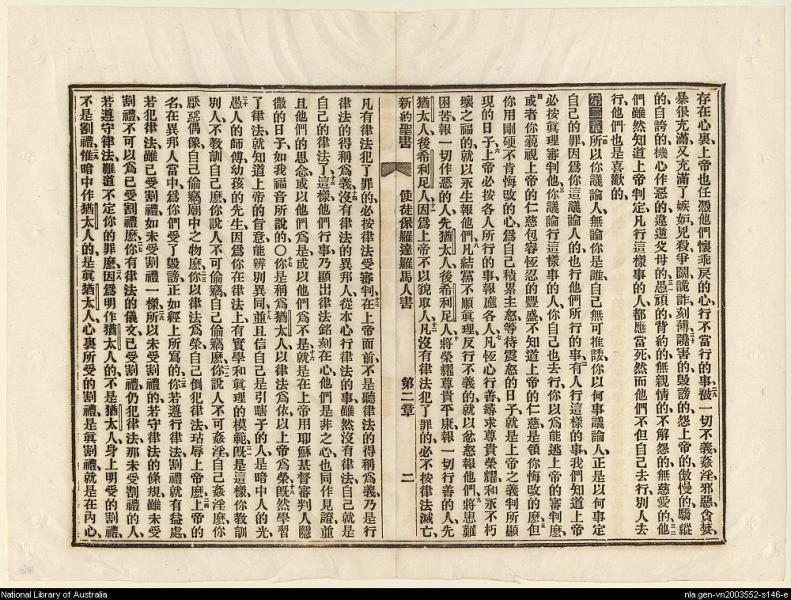 存在心裏上帝也任憑他們懷乖戾的心行不當行的事被一切不義姦淫邪惡貪婪
暴很充滿又充滿了嫉妬兇殺爭鬬詭詐刻薄讒害的毀謗的怨上帝的傲慢的驕縱
的自誇的機心作惡的違逆父母的愚頑的背約的無親情的不解怨的無慈愛的他
們雖然知道上帝判定凡行這樣事的人都應當死然而他們不但自己去行別人去
行他們也是喜歡的
第二章所以你議論人無論你是誰自己無可推諉你以何事議論人正是以何事定
自己的罪因爲你這議論人的也行他們所行的事有人行這樣的事我們知道上帝
必按眞理審判他你議論行這樣事的人你自己也去行你以爲能逃上帝的審判麽
或者你藐視上帝的仁慈包容恆忍的豐盛不知道上帝的仁慈是領你悔改的麽但
你用剛硬不肯悔改的心爲自己積累忿怒等待震怒的日子就是上帝之義判所顯
現的日子上帝必按各人所行的事報應各人凡恆心行善尋求尊貴榮耀和永不朽
壞之福的就以永生報他們凡結黨不順眞理反行不義的就以忿怒報他們將患難
困苦報一切作惡的人先猶太人後希利尼人將榮耀尊貴平康報一切行善的人先
猶太人後希利尼人因爲上帝不以貌取人凡沒有律法犯了罪的必不按律法滅亡
新約聖書 使徒保羅達羅馬人書 第二章 二
凡有律法犯了罪的必按律法受審判在上帝面前不是聽律法的得稱爲義乃是行
律法的得稱爲義沒有律法的異邦人從本心行律法的事雖然沒有律法自己就是
自己的律法了這樣他們行事乃顯出律法銘刻在心他們是非之心也同作見證並
且他們的思念或以他們爲是或以他們爲不是就是在上帝用耶穌基督審判人隱
微的日子如我福音所說的〇你是稱爲猶太人以律法爲依以上帝爲榮旣然學習
了律法就知道上帝的旨意能辨別異同並且信自己是引瞎子的人是暗中人的光
愚人的師傅幼孩的先生因爲你在律法上有實學和眞理的模範旣是這樣你教訓
別人不教訓自己麽你說人不可偷竊自己偷竊麽你說人不可姦淫自己姦淫麽你
厭惡偶像自己偷竊廟中之物麽你以律法爲榮自己倒犯律法玷辱上帝麽上帝的
名在異邦人當中爲你們受了毀謗正如經上所寫的你若遵行律法割禮就有益處
若犯律法雖已受割禮如未受割禮一樣所以未受割禮的若守律法的條規雖未受
割禮不可以爲已受割禮麽你有律法的儀文已受割禮仍犯律法那未受割禮的人
若遵守律法難道不定你的罪麽因爲明作猶太人的不是猶太人身上明受的割禮
不是割禮惟暗中作猶太人的是眞猶太人心裏所受的割禮是眞割禮就是在內心
National Library of Australia
nla.gen-vn2003552-s146-e